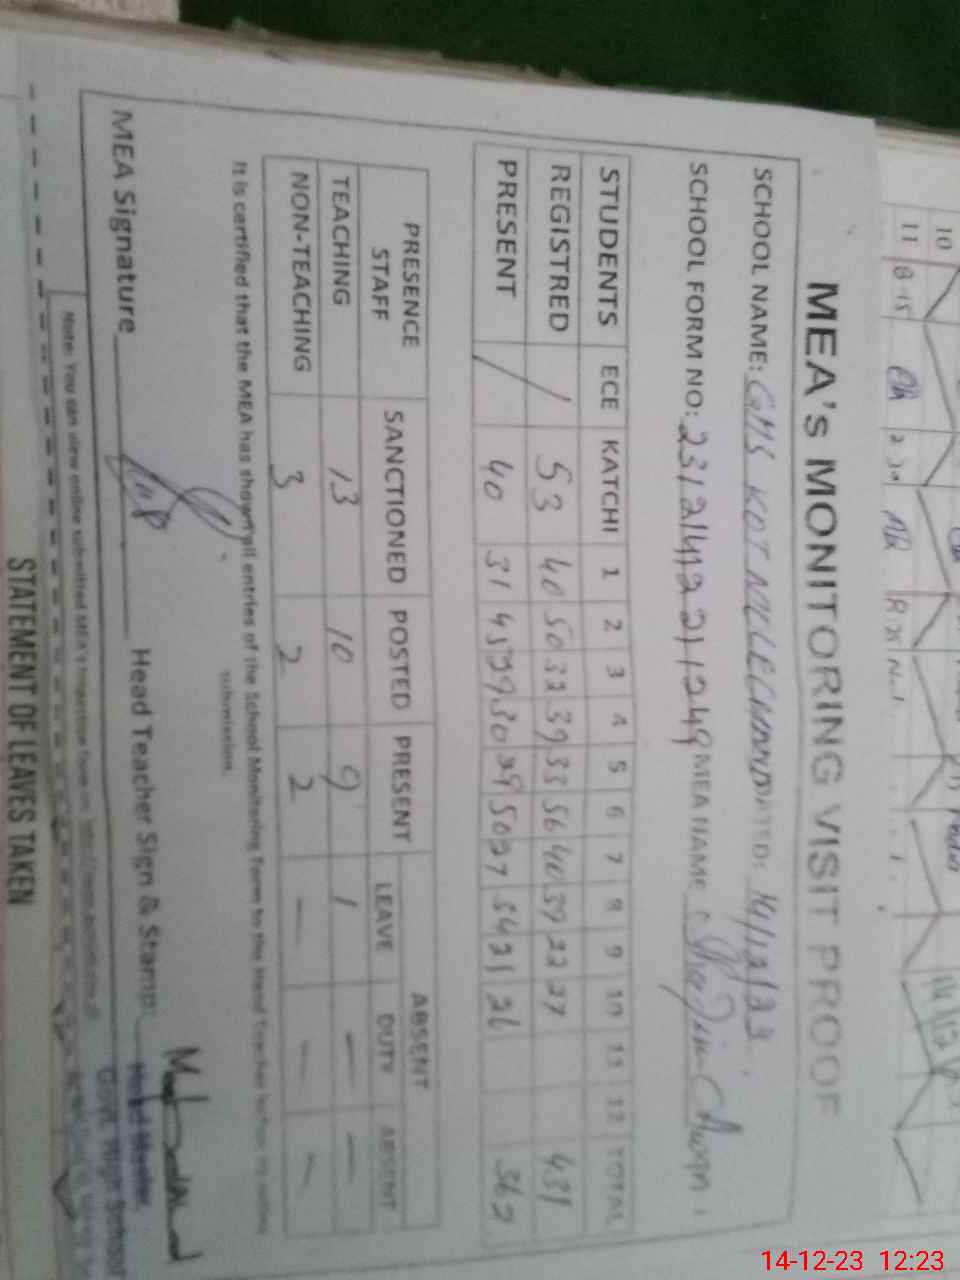 10
11 8-15 2-30
MEA's MONITORING VISIT PROOF
SCHOOL NAME: GHS KOT DATED: 14/12/23
SCHOOL FORM NO: 23121412221249 MEA NAME Awan
STUDENTS ECE KATCHI 1 2 3 4 5 6 7 8 9 10 11 12 TOTAL
REGISTRED / 53 40 50 32 39 33 56 40 39 22 27 431
PRESENT / 40 31 45 29 30 29 50 27 34 21 26
PRESENCE STAFF SANCTIONED POSTED PRESENT ABSENT
LEAVE DUTY ABSENT
TEACHING 13 10 9 1 — —
NON-TEACHING 3 2 2 — — —
It is certified that the MEA has shown all entries of the School Monitoring Form to the Head Teacher before
submission.
MEA Signature Head Teacher Sign & Stamp:
Head Master
Govt. High School
Note: You can view online submitted MEA's
STATEMENT OF LEAVES TAKEN
14-12-23 12:23